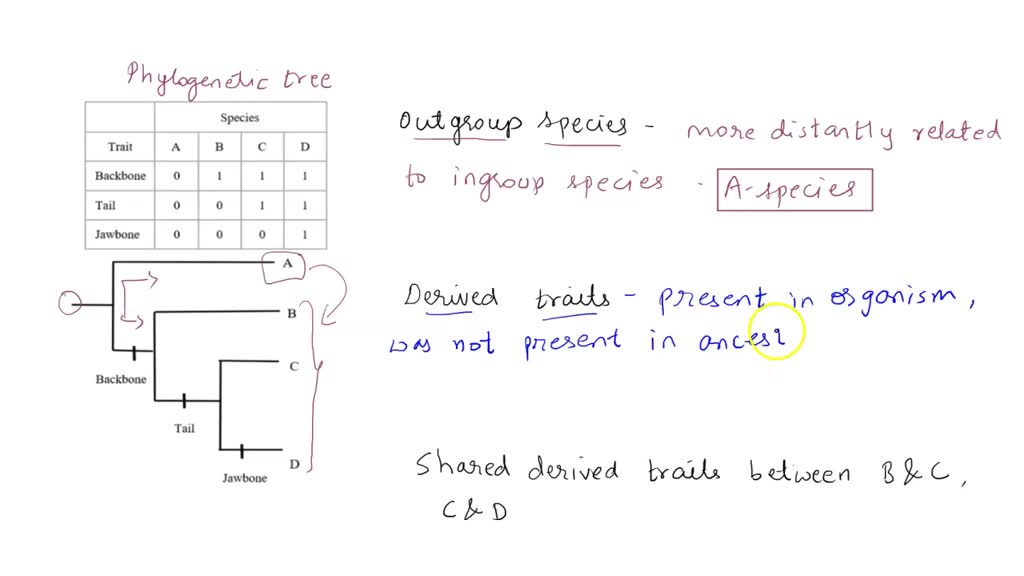 Phylogenetic tree
Species
Trait A B C D
Backbone 0 1 1 1
Tail 0 0 1 1
Jawbone 0 0 0 1
A
B
Backbone
C
Tail
D
Jawbone
Outgroup species - more distantly related
to ingroup species - A-species
Derived traits - present in organism,
was not present in
Shared derived traits between B & C,
C & D